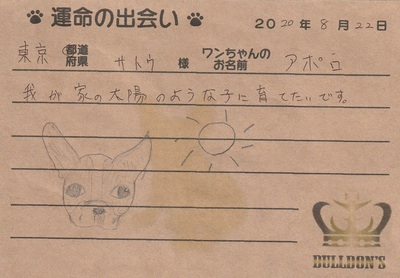 運命の出会い
2020年8月22日
東京 都道府県 サトウ 様 ワンちゃんのお名前 アポロ
我が家の太陽のような子に育てたいです。
BULLDON'S